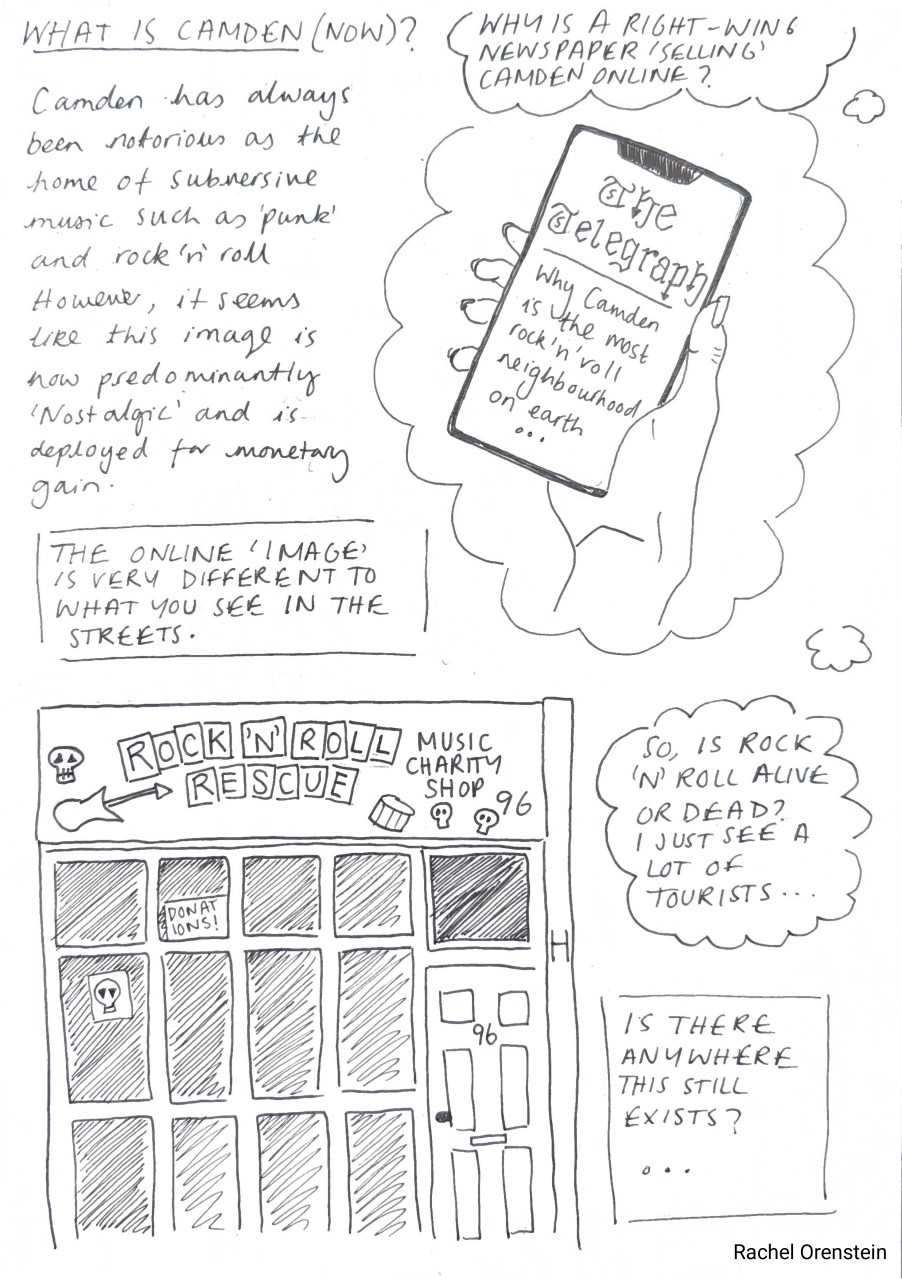 WHAT IS CAMDEN (NOW)?
Camden has always
been notorious as the
home of subversive
music such as 'punk'
and rock 'n' roll
However, it seems
like this image is
now predominantly
'Nostalgic' and is
deployed for monetary
gain.
WHY IS A RIGHT-WING
NEWSPAPER 'SELLING'
CAMDEN ONLINE?
The
Telegraph
Why Camden
is the most
rock'n'roll
neighbourhood
on earth
...
THE ONLINE 'IMAGE'
IS VERY DIFFERENT TO
WHAT YOU SEE IN THE
STREETS.
ROCK 'N' ROLL
RESCUE
MUSIC
CHARITY
SHOP
96
DONAT
IONS!
96
SO, IS ROCK
'N' ROLL ALIVE
OR DEAD?
I JUST SEE A
LOT OF
TOURISTS...
IS THERE
ANYWHERE
THIS STILL
EXISTS?
...
Rachel Orenstein